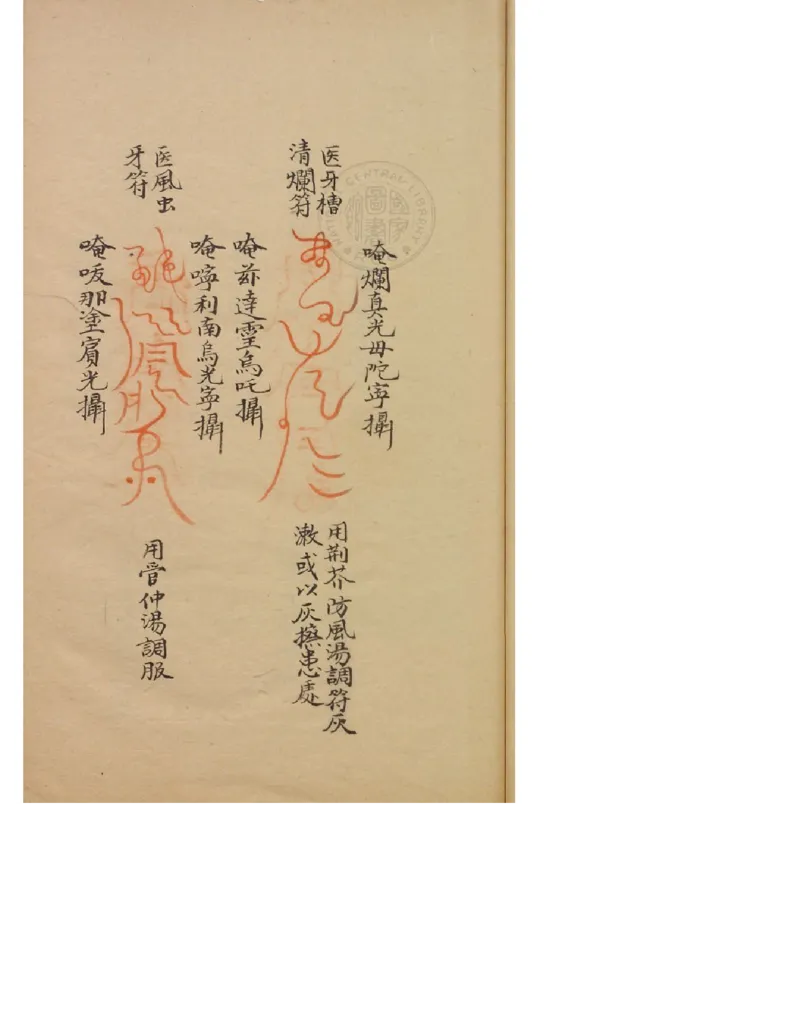 唵爛真光毋陀寧攝
医牙槽
清爛符
用荆芥防風湯調符灰
漱或以灰擦患處
唵茲達霊烏吒攝
唵嚀利南烏光寧攝
医風虫
牙符
用管仲湯調服
唵𠲖那塗賓光攝
CENTRAL LIBRARY